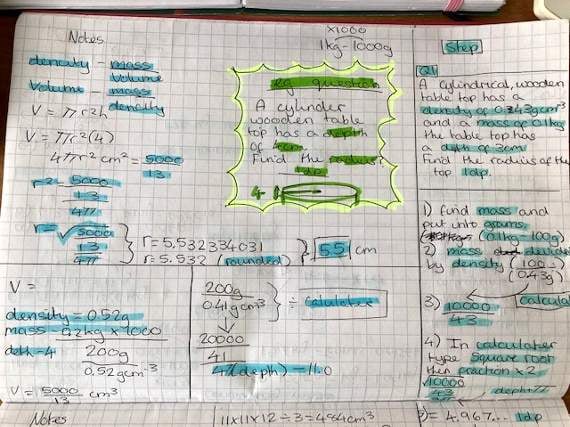 Notes
density - mass
Volume
Volume - mass
density
V = πr²h
V = πr²(4)
4πr² cm² = 5000
13
r² = 5000
13
4π
r = √5000
13
4π
r = 5.532334031
r = 5.532 (rounded)
5.5 cm
×1000
1kg - 1000g
eg question
A cylinder
wooden table
top has a depth
of 4cm
Find the radius
1dp
4
Step
Q1
A cylindrical, wooden
table top has a
density of 0.43gcm³
and a mass of 0.1kg
the table top has
a depth of 3cm
Find the radius of the
top 1dp.
1) find mass and
put into grams.
(0.1kg - 100g)
2) mass divided
by density (100
0.43g)
3) 10000
43
4) In calculater
type square root
then fraction x2
√10000
43
depth
= 4.967... 1dp
V =
density = 0.52g
mass - 0.2kg x 1000
200g
0.52gcm-³
V = 5000 cm³
13
200g
0.41gcm³
÷ Calulater
20000
41
4(depth) - 11.0
Notes
11x11x12÷3 = 484cm³